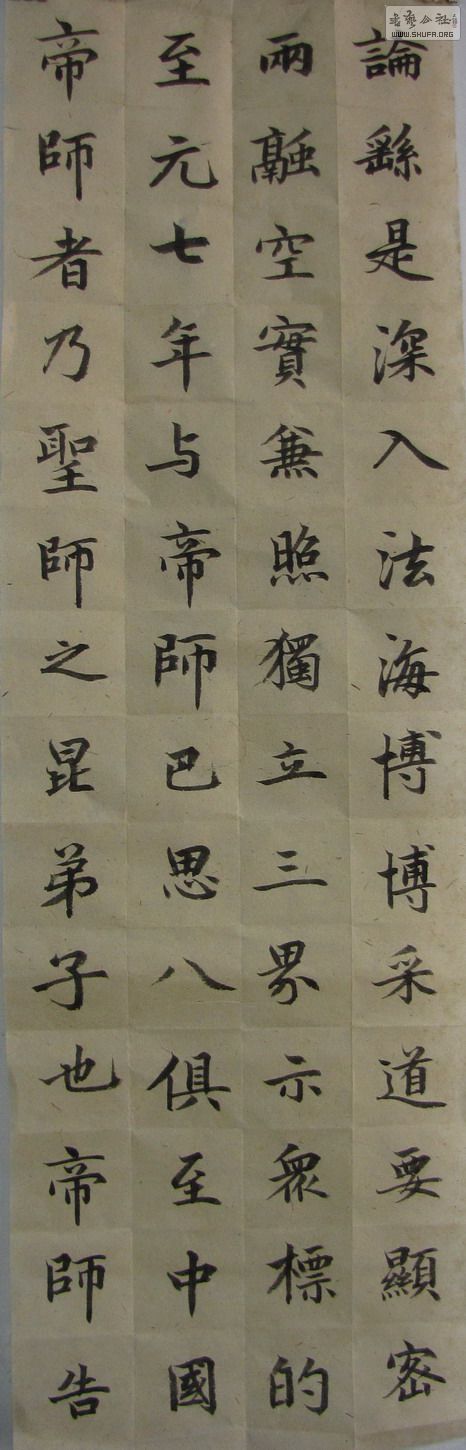 論繇是深入法海博博采道要顯密
兩融空實兼照獨立三界示衆標的
至元七年与帝師巴思八俱至中國
帝師者乃聖師之昆弟子也帝師告
書藝公社
WWW.SHUFA.ORG